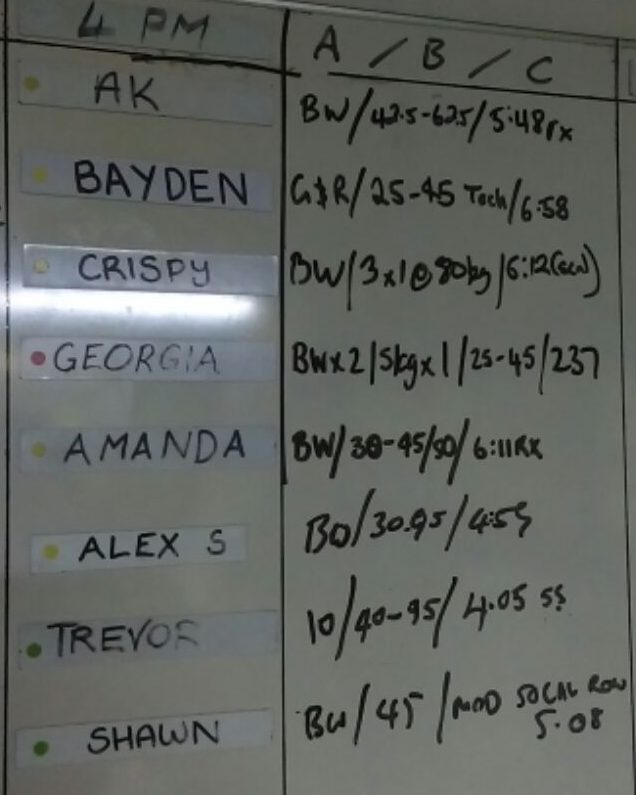 4 PM A / B / C
AK BW/42.5-62.5/5:48rx
BAYDEN G&R/25-45 Tech/6.58
CRISPY BW/3x1@80kg/6:12
GEORGIA BWx2/5kgx1/25-45/237
AMANDA BW/30-45/50/6:11RX
ALEX S BO/30.95/4:59
TREVOR 10/40-95/4.05 SS
SHAWN BW/45/MOD SOCAL ROW
5.08